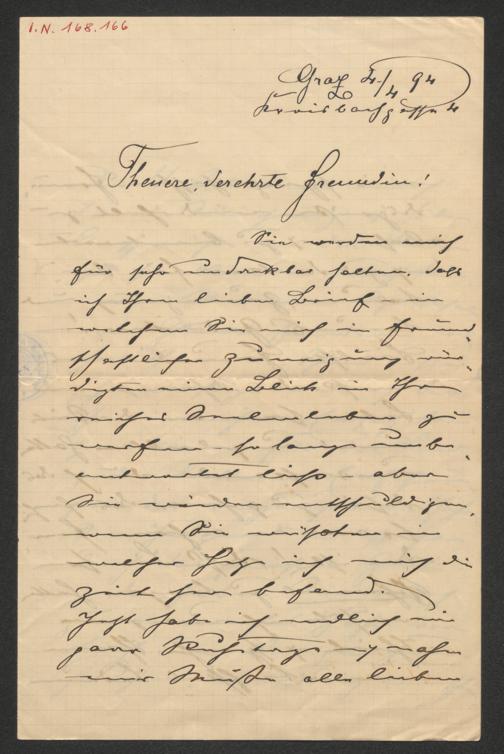 I.N. 168.166
Graz 4/4 94
Kroisbachgasse 4
Theuere, verehrte Freundin!
Sie werden mich
für sehr undankbar halten, daß
ich Ihren lieben Brief – in
welchem Sie mich in freund
schaftlicher Zuneigung wür-
digten einen Blick in Ihr
reiches Seelenleben zu
werfen – so lange unbe-
antwortet ließ – aber
Sie würden entschuldigen,
wenn Sie wüßten in
welcher Hetz ich mich die
Zeit her befand.
Jetzt habe ich endlich ein
paar Ruhetage u nahm
mir Muße alle lieben